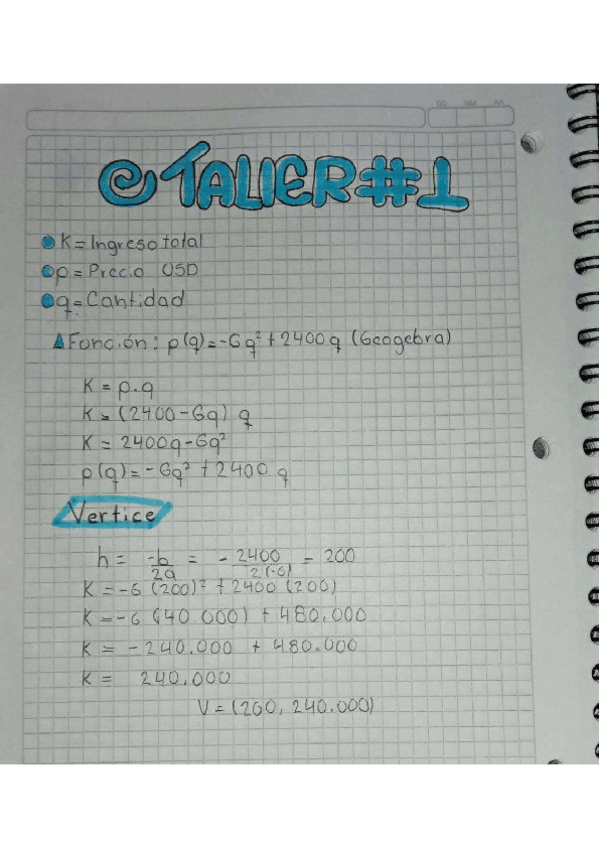 TALLER #1
K = Ingreso total
p = Precio USD
q = Cantidad
Función: p(q) = -6q² + 2400q (Geogebra)
K = p.q
K = (2400-6q) q
K = 2400q-6q²
p(q) = -6q² + 2400 q
Vertice
h = -b/2a = - 2400/2(-6) = 200
K = -6 (200)² + 2400 (200)
K = -6 (40.000) + 480.000
K = -240.000 + 480.000
K = 240.000
V = (200, 240.000)